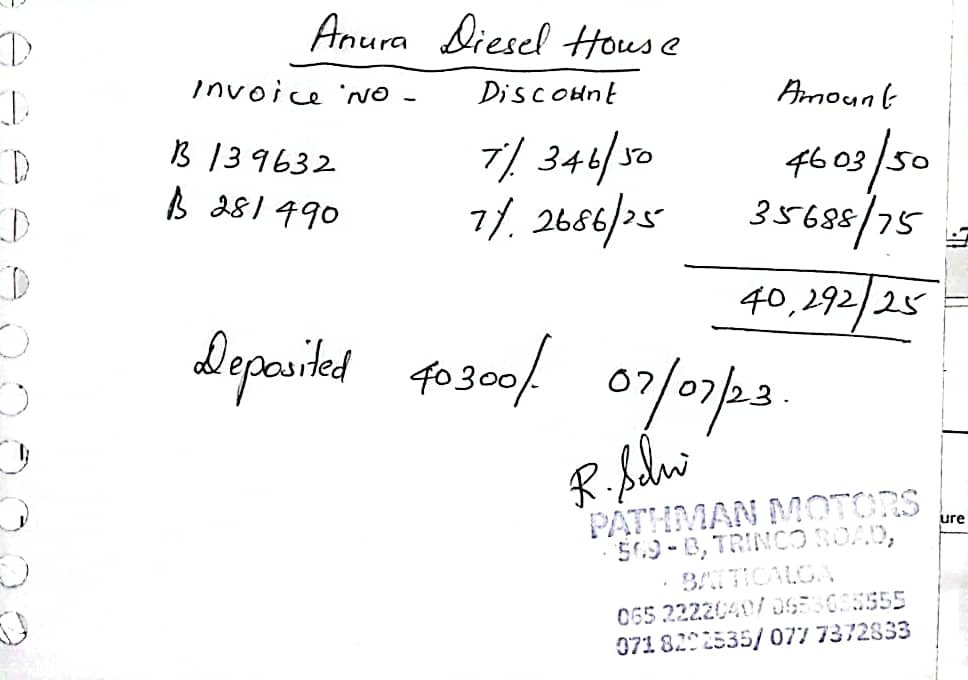 Anura Diesel House
Invoice No - Discount Amount
B 139632 7% 346/50 4603/50
B 281490 7%. 2686/25 35688/75
40,292/25
Deposited 40300/- 07/07/23.
R.
PATHMAN MOTORS
569-B, TRINCO ROAD,
BATTICALOA
065 2222040/
/ 077 7372833
ure